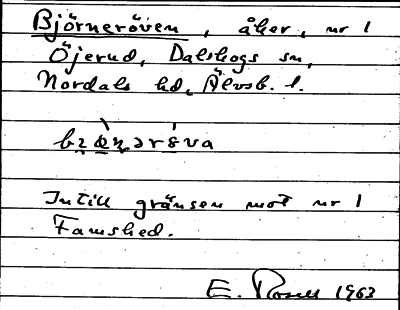 Björneröven, åker, nr 1
Öjerud, Dalskogs sn,
Nordals hd, Älvsb. l.
Intill gränsen mot nr 1
Famshed.
E. Rosell 1963